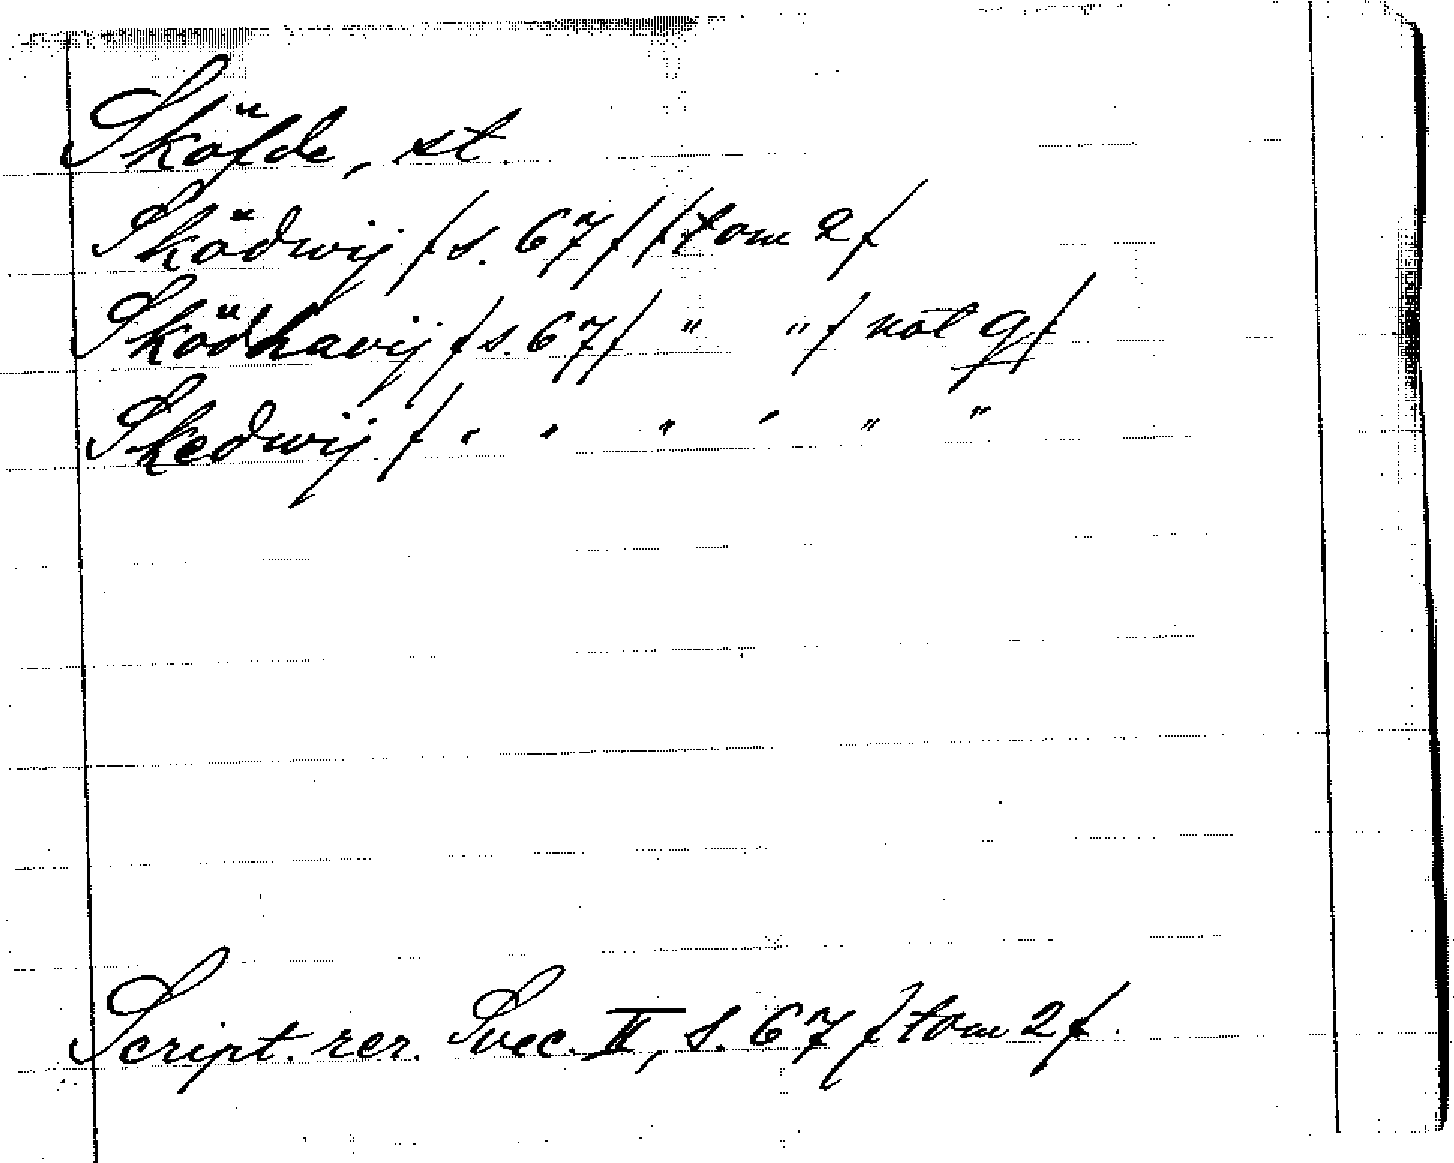 Sköfde, st.
Sködwij /s. 67/ /tom 2/
Sködhavij /s. 67/ " " / not g/
Skedwij / " " " " " "
Script. rer. Svec. II, s. 67 /tom 2/.